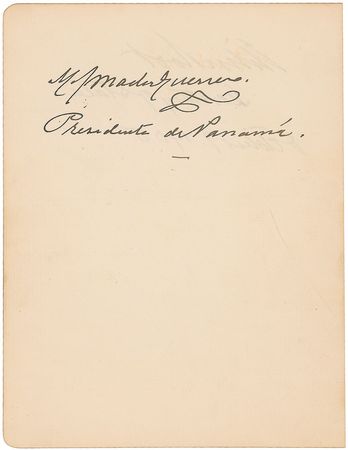 M. Amador Guerrero.
Presidente de Panamá.